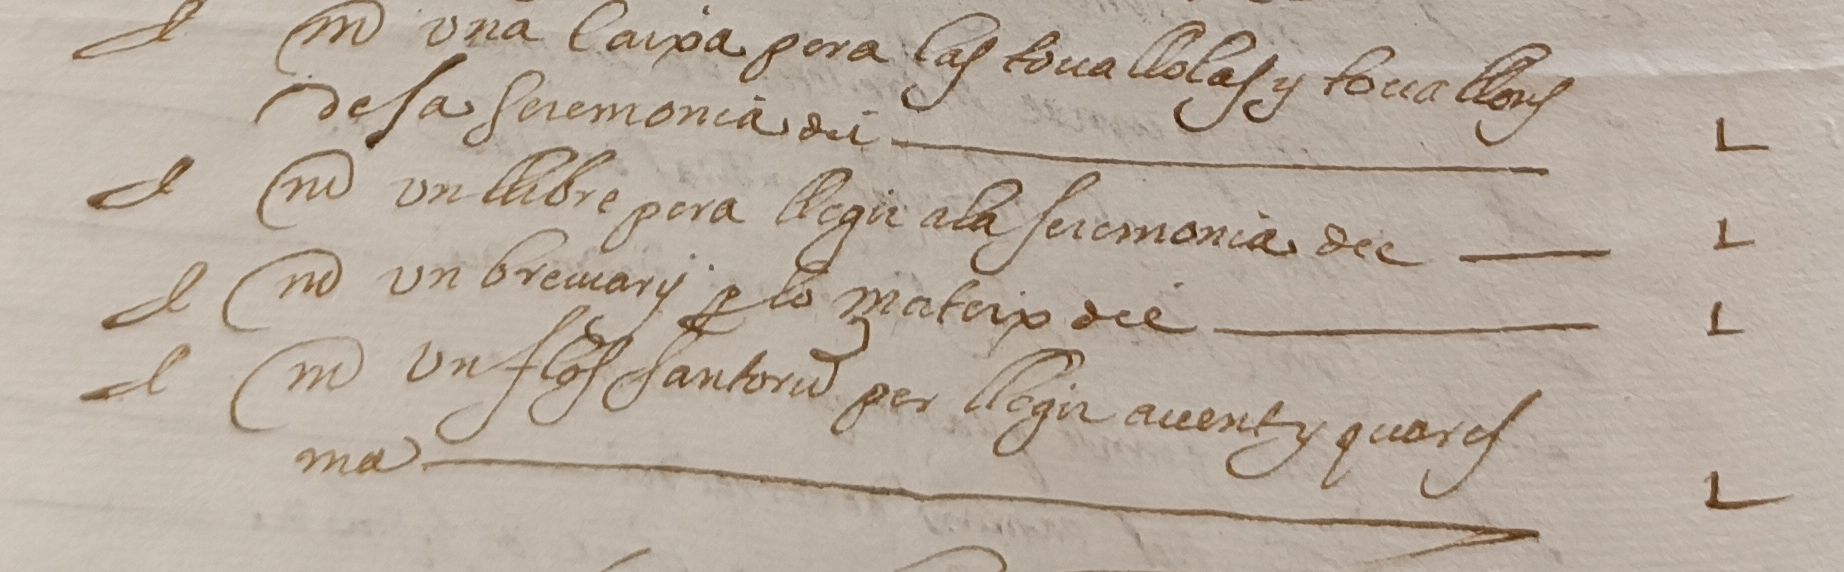 una caixa pera las touallolas y touallons
de la seremonia die L
un llibre pera llegir a la seremonia die L
un breuiarij p lo mateix die L
un flos santoru per llegir auent y quares
ma L